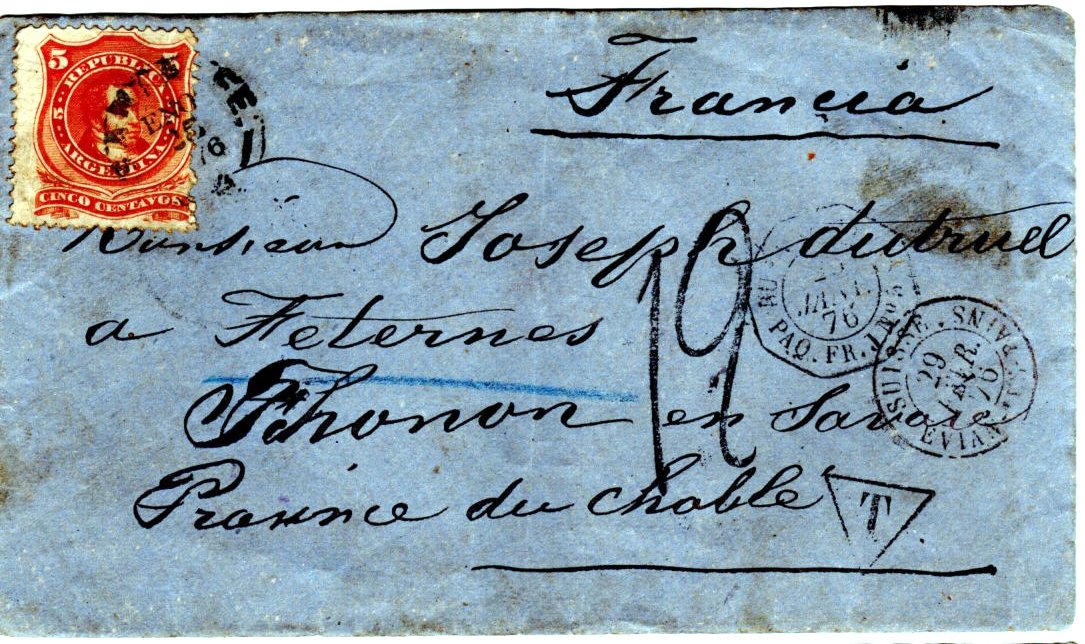 Francia
5 5
REPUBLICA
ARGENTINA
CINCO CENTAVOS
76
Monsieur Joseph dutruel
a Feternes
Thonon en Savoie
Province du Chable
12
JANV.
76
PAQ. FR. J Nº 5
SUISSE
29
FEVR.
76
EVIAN-LES-BAINS
T